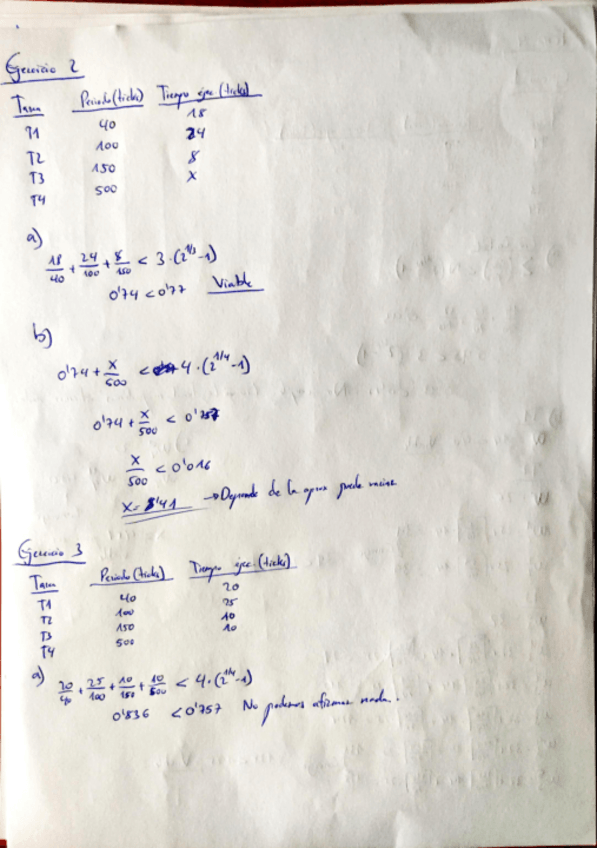 Ejercicio 2
Tarea Periodo (ticks) Tiempo ejec. (ticks)
T1 40 18
T2 100 24
T3 150 8
T4 500 X
a)
18/40 + 24/100 + 8/150 < 3·(2^1/3-1)
0'74 < 0'77 Viable
b)
0'74 + X/500 < 4·(2^1/4-1)
0'74 + X/500 < 0'757
X/500 < 0'016
X= 8'41 → Depende de la aprox puede variar
Ejercicio 3
Tarea Periodo (ticks) Tiempo ejec. (ticks)
T1 40 20
T2 100 25
T3 150 10
T4 500 10
a)
20/40 + 25/100 + 10/150 + 10/500 < 4·(2^1/4-1)
0'836 < 0'757 No podemos afirmar nada.